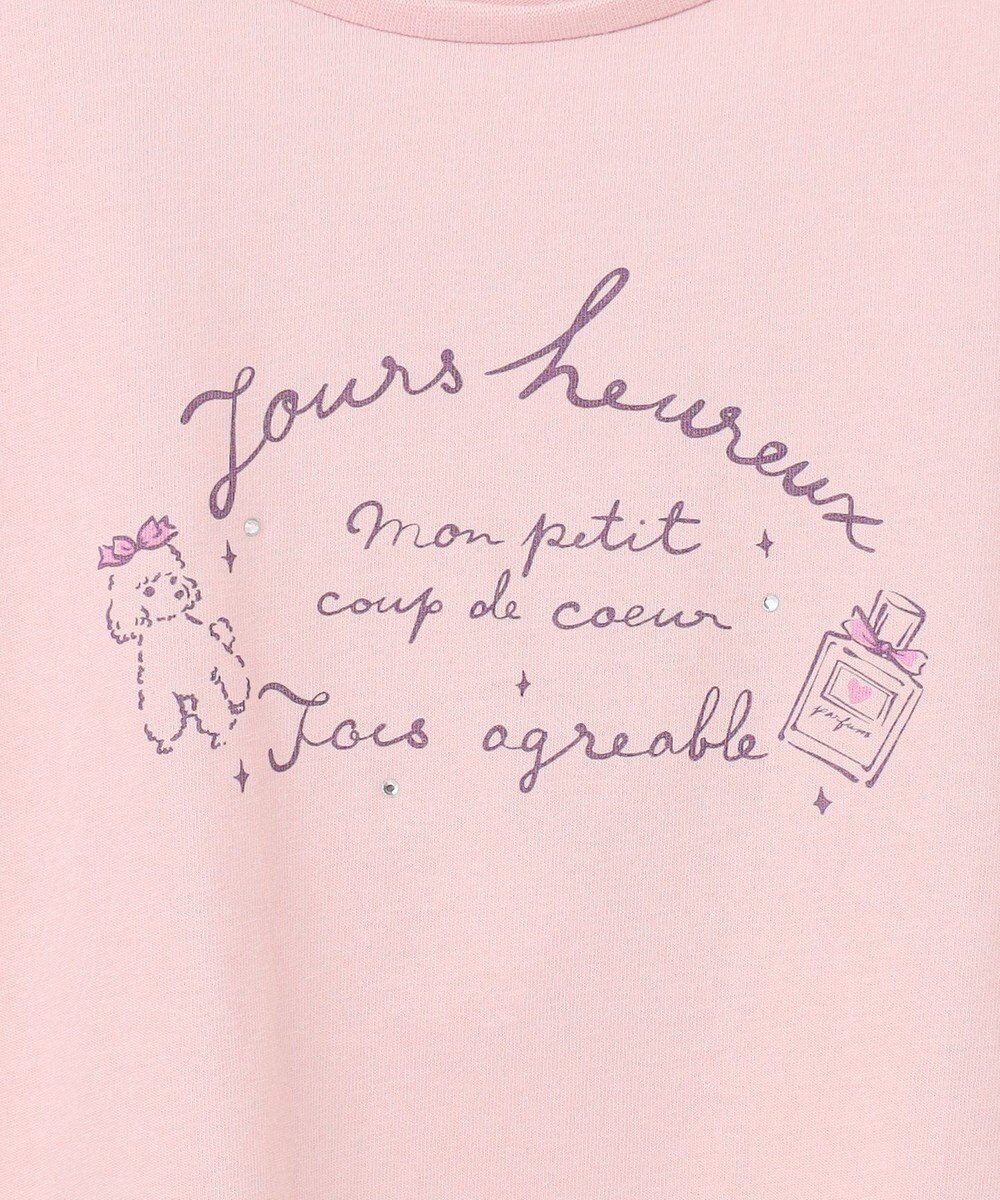 Jours heureux
Mon petit
coup de coeur
Jois agreable
parfum